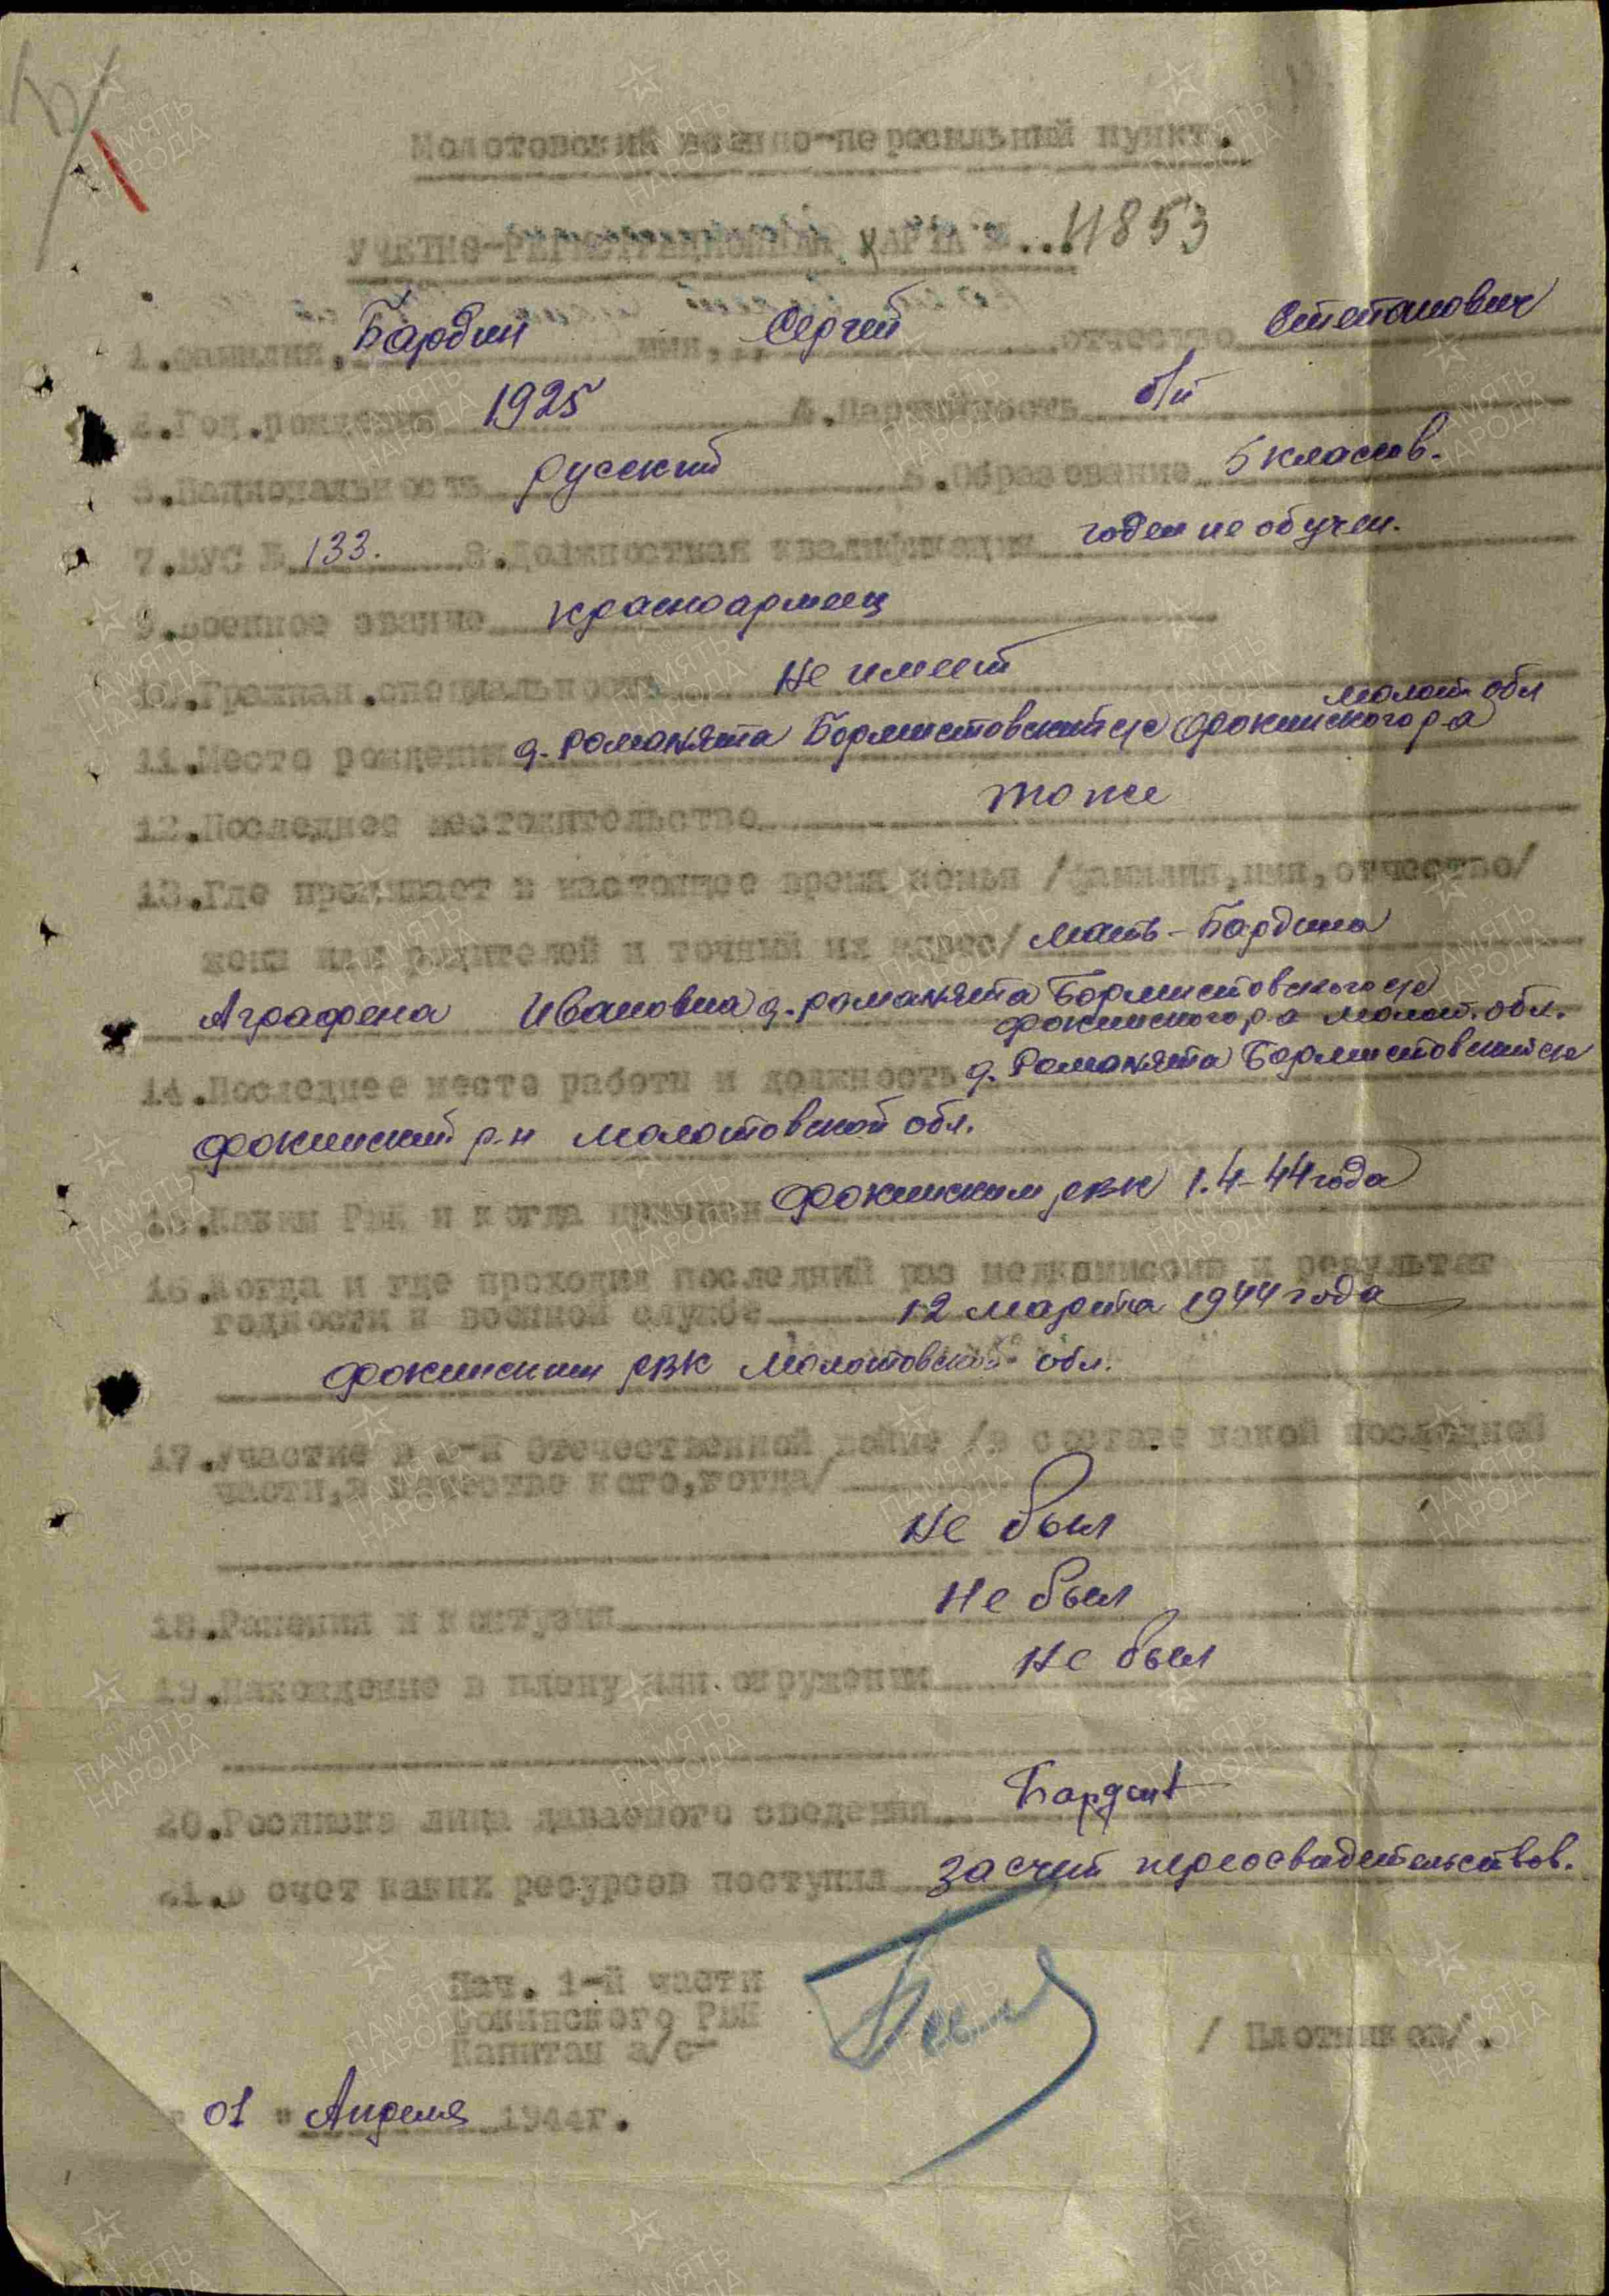 Молотовский военно-пересильный пункт.
УЧЕТНО-РЕГИСТРАЦИОННАЯ КАРТА № ... 11853
1.Фамилия, Бардин имя, Сергей отчество Степанович
2.Год.рождения 1925 4.Партийность б/п
5.Национальность русский 6.Образование 5 класов.
7.ВУС № 133. 8.Должностная квалификация годен не обучен.
9.Военное звание красноармеец
10.Граждан.специальность не имеет
Молот. обл
11.Место рождения д. Романята Бормистовский с/с Фокинского р-а
12.Последнее местожительство то же
13.Где проживает в настоящее время семья /фамилия,имя,отчество/
жены или родителей и точный их адрес/ мать - Бардина
Аграфена Ивановна д. Романята Бормистовского с/с
Фокинского р-а Молот. обл.
14.Последнее место работы и должность д. Романята Бормистовский с/с
Фокинский р-н Молотовской обл.
15.Каким РВК и когда призван Фокинским рвк 1.4-44 года
16.Когда и где проходил последний раз медкомиссию и результат
годности к военной службе 12 марта 1944 года
Фокинским рвк Молотовской обл.
17.Участие в В-й Отечественной войне /в составе какой последней
части,в качестве кого,когда/
Не был
18.Ранения и контузии Не был
19.Нахождение в плену или окружении Не был
20.Росписка лица даваемого сведения Бардин
21.В счет каких ресурсов поступил за счет переосвидетельствов.
Нач. 1-й части
Фокинского РВК
Капитан а/с- / Плотников/.
" 01 " Апреля 1944г.
ПАМЯТЬ
НАРОДА